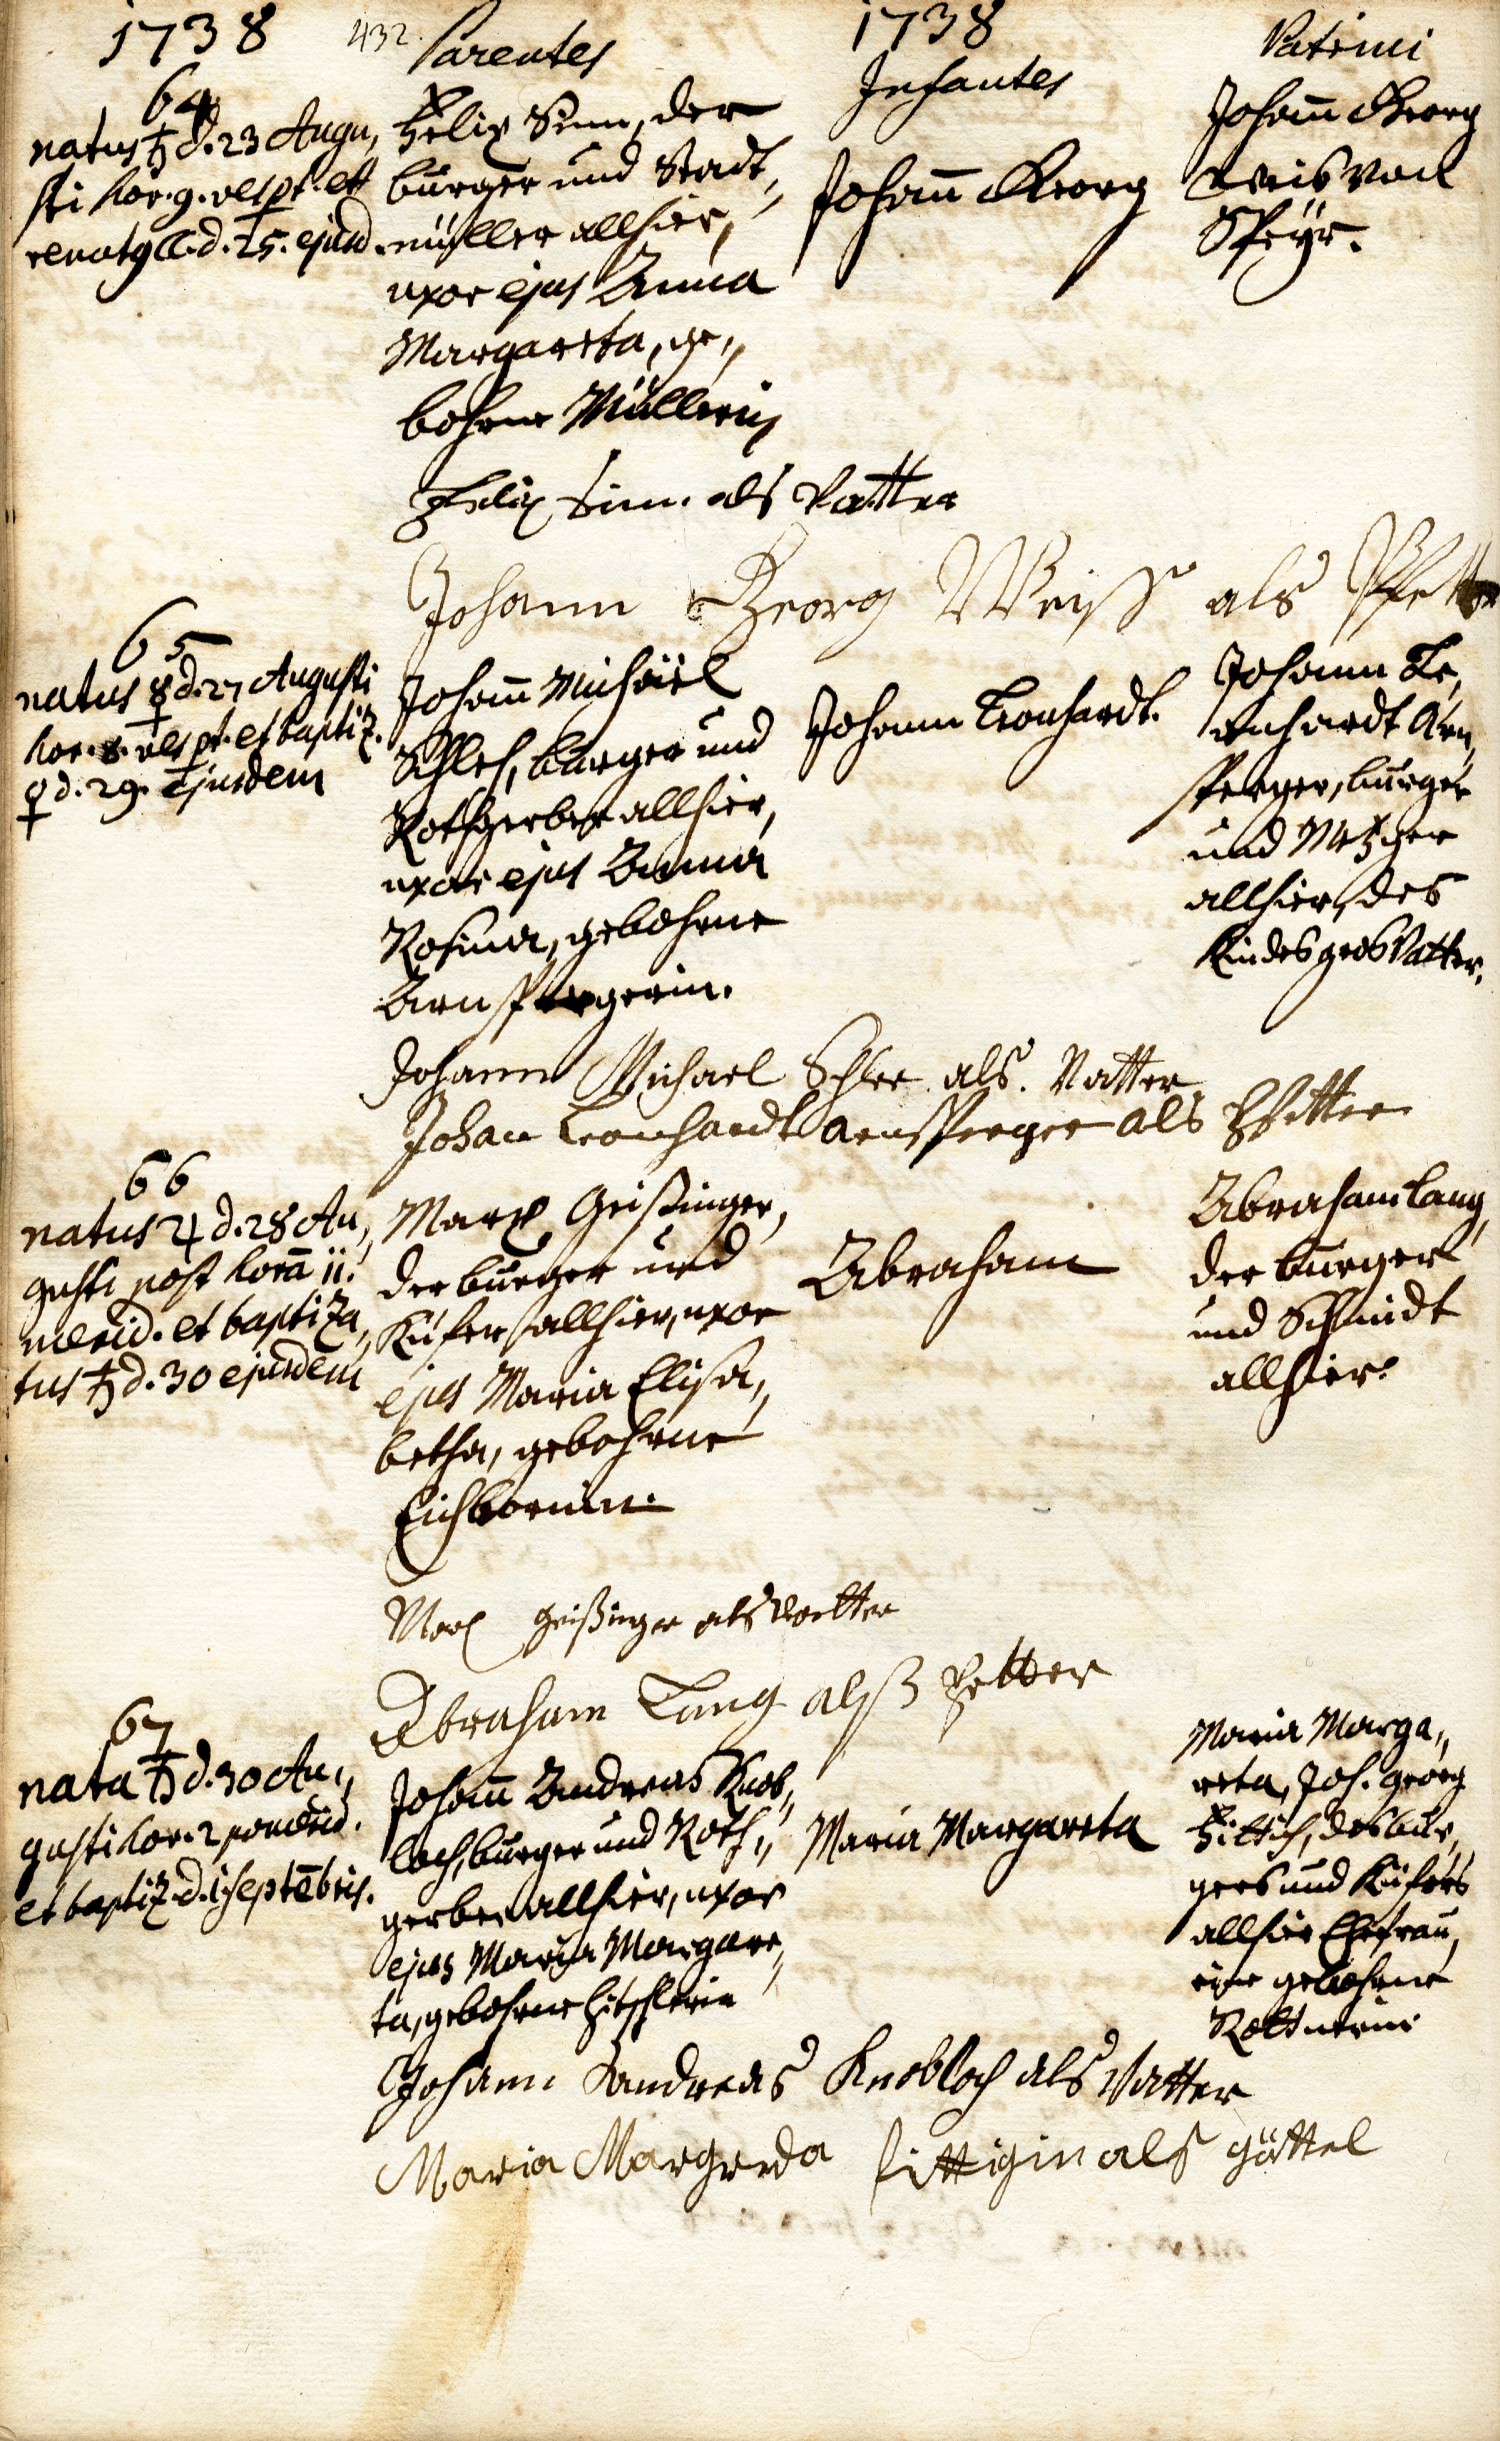 1738
432.
Parentes
1738
Infantes
Patrini
64
natus ♄ d. 23 Augu,
sti hor. 9. vespt. et
renatq ☾ d. 25. ejusd.
Felix Sim, der
burger und Stadt,,
müller allhier,
uxor ejus Anna
Margareta, ge,,
bohrne Müllerin
Johann Georg
Johann Georg
Weis von
Speÿr.
Felix Sim. als Vatter
Johann Georg Weiß als Pfetter
65
natus ☿ d. 27 Augusti
hor. 8. vespt. et baptiz.
♀ d. 29. ejusdem
Johann Michäel
Schleh, burger und
Rothgerber allhier,
uxor ejus Anna
Rosina, gebohrne
Arnspergerin.
Johann Leonhardt.
Johann Le,
onhardt Arn,
sperger, burger
und Metzger
allhier, des
Kindes gros Vatter.
Johann Michael Schlee als. Vatter
Johan Leonhardt arnsperger als Pfetter
66
natus ♃ d. 28 Au,,
gusti post horā 11.
merid. et baptiza,,
tus ♄ d. 30 ejusdem
Marx Geißinger,
der burger und
Küfer allhier, uxor
ejus Maria Elisa,,
betha, gebohrne
Eichbornin.
Abraham
Abraham Lang,
der burger
und Schmidt
allhier.
Marx Geißinger als Vatter
Abraham Lang alß Petter
67
nata ♄ d. 30 Au,,
gusti hor. 2 pomerid.
et baptiz. d. 1 septēbris.
Johann Andreas Knob,,
loch, burger und Roth,,
gerber allhier, uxor
ejus Maria Margare,,
ta, gebohrne Hitschlerin
Maria Margareta
Maria Marga,,
reta, Joh. Georg
Hittich, des bur,
gers und Küfers
allhier Ehefrau,
eine gebohrne
Johann Andreas Knobloch als Vatter
Maria Margreda Hittigin als göttel